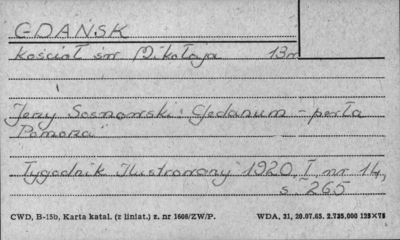 GDAŃSK
Kościół św Mikołaja 13w
Jerzy Sosnowski: Gedanum - perła
Pomorza"
Tygodnik Ilustrowany 1920, I, nr 14,
s. 265
CWD, B-15b, Karta katal. (z liniat.) z. nr 1606/ZW/P. WDA, 21, 20.07.65. 2.735.000 125×75